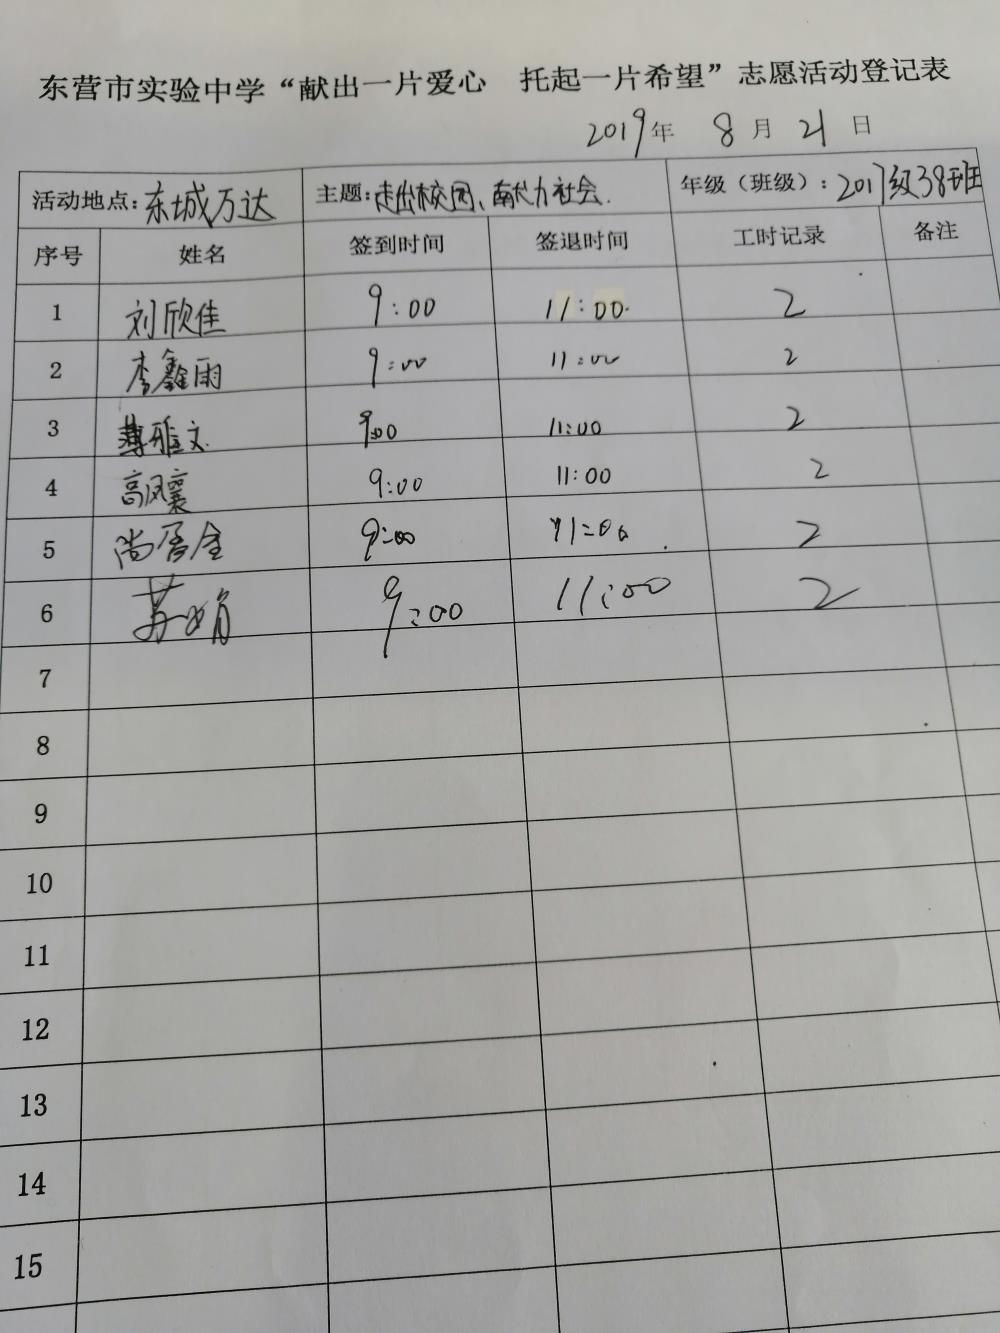 东营市实验中学“献出一片爱心 托起一片希望”志愿活动登记表
2019年 8月 21日
活动地点:东城万达 主题:走出校园、献力社会. 年级（班级）:2017级38班
序号 姓名 签到时间 签退时间 工时记录 备注
1 刘欣佳 9:00 11:00 2
2 李鑫雨 9:00 11:00 2
3 薄雅文 9:00 11:00 2
4 高凤襄 9:00 11:00 2
5 尚 9:00 11:00 2
6 苏娟 9:00 11:00 2
7
8
9
10
11
12
13
14
15